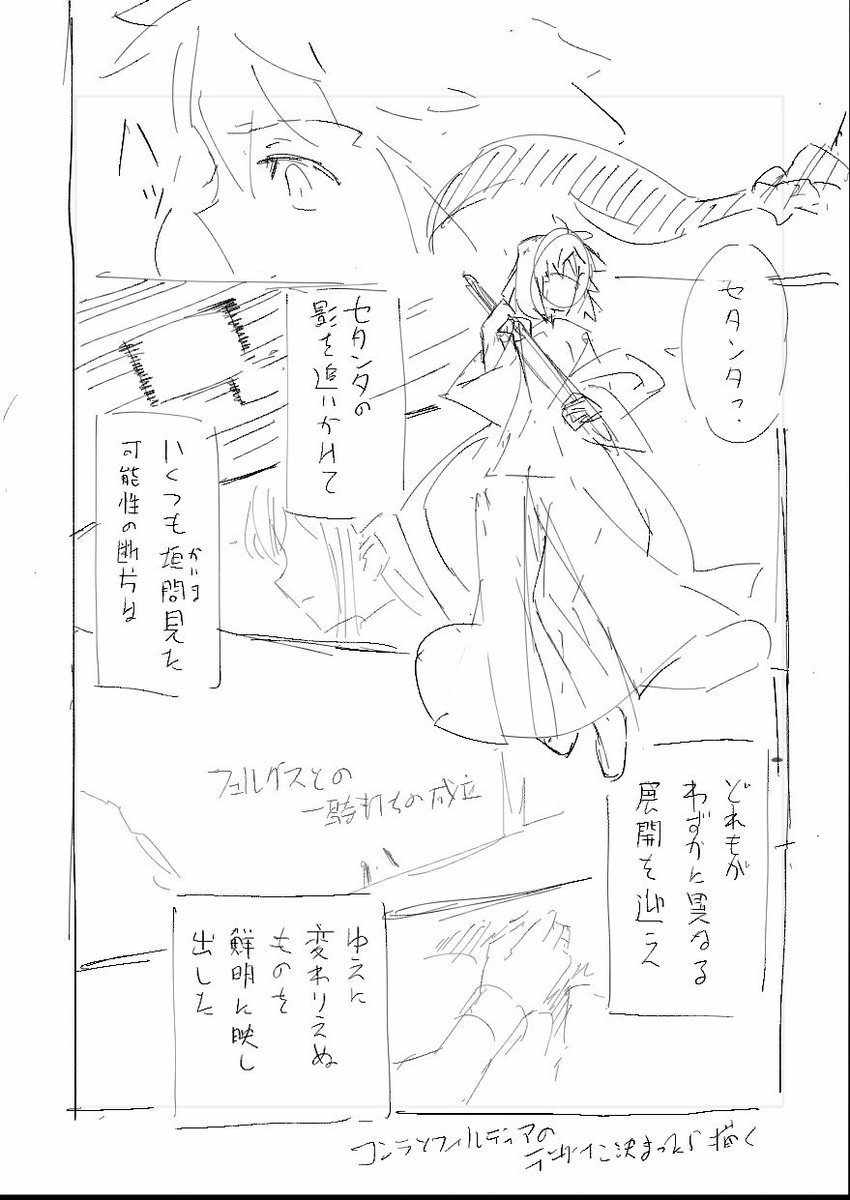 ハッ
セタンタ?
セタンタの
影を追いかけて
いくつも垣間見た
かいま
可能性の断片は
フェルグスとの
一騎打ちの成立
どれもが
わずかに異なる
展開を迎え
ゆえに
変わりえぬ
ものを
鮮明に映し
出した
コンラとフィルディアの
デザイン決まったら描く